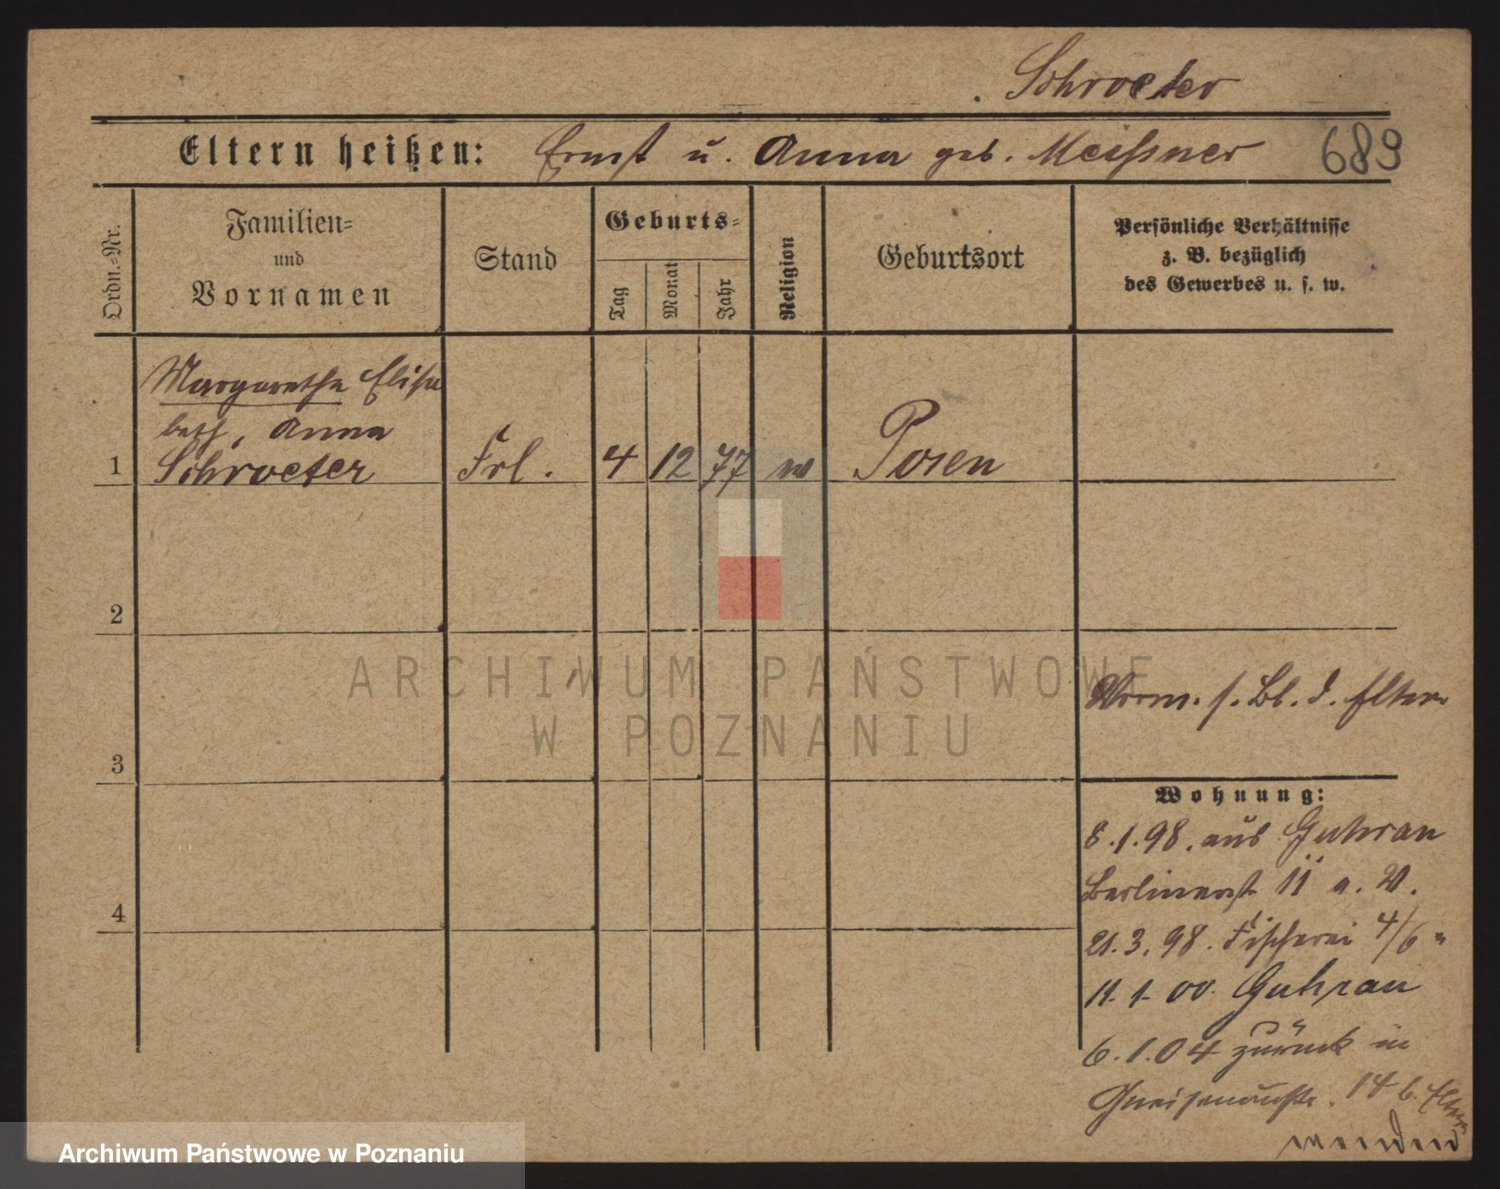 Schroeter
Eltern heißen: Ernst u. Anna geb. Meißner
689
Ordn.-Nr.
Familien-
und
Vornamen
Stand
Geburts-
Tag
Monat
Jahr
Religion
Geburtsort
Persönliche Verhältnisse
z. B. bezüglich
des Gewerbes u. s. w.
Margarethe Elisa
beth, Anna
1 Schroeter Frl. 4 12 77 Posen
2
ARCHIWUM PAŃSTWOWE
W POZNANIU
s. Bl. d. Eltern
3
Wohnung:
8.1.98. aus Guhrau
Berlinerstr 11
21.3.98. Fischerei 4/6
11.1.00. Guhrau
4
6.1.04 zurück in
Gneisenaustr. 14 b. Eltern
wenden
Archiwum Państwowe w Poznaniu